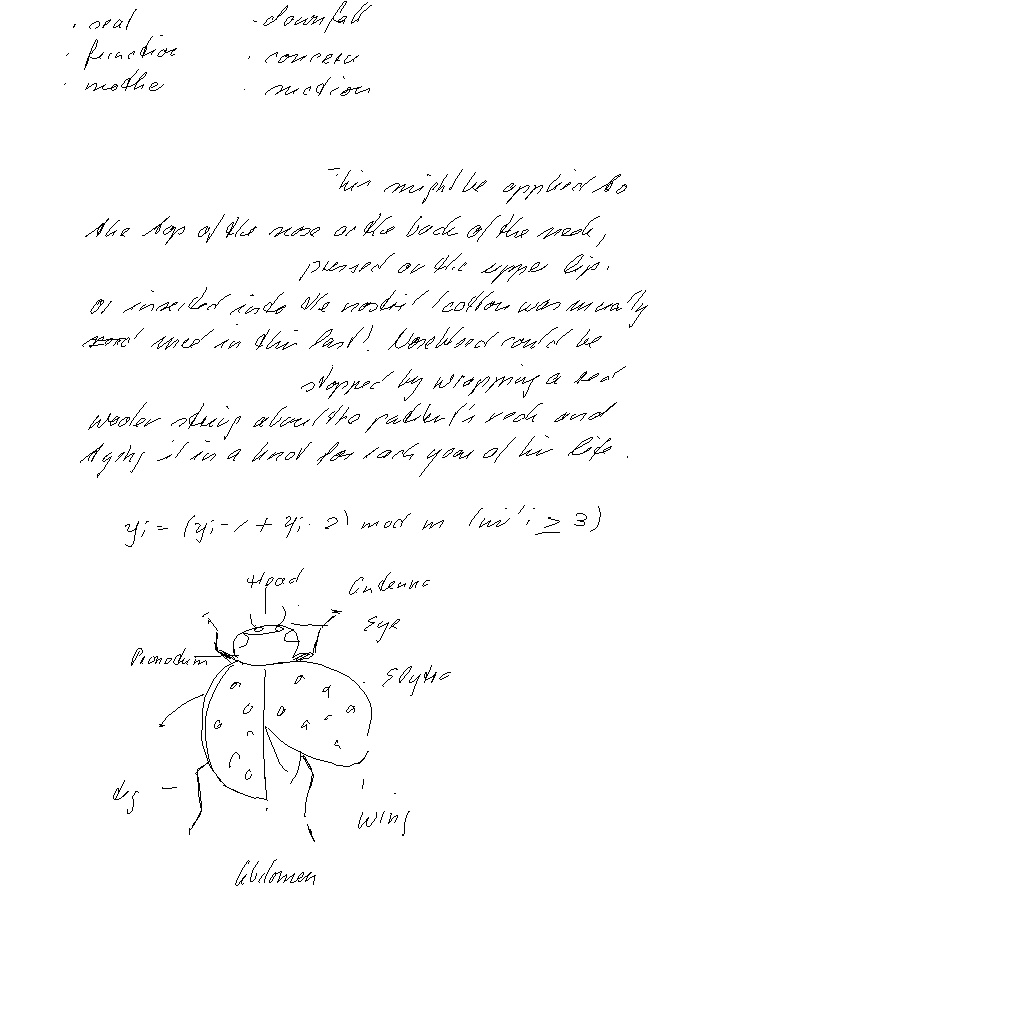 · seal · downfall
· function · concern
· mothe · motion
This might be applied to
the top of the nose or the back of the neck,
pressed on the upper lip.
or inserted into the nostril (cotton was usually
used in this last). Nosebleed could be
stopped by wrapping a red
woolen string about the patient's neck and
tying it in a knot for each year of his life.
yi = (yi-1 + yi-2) mod m ( i ≥ 3)
Head
Antenna
Eye
Pronotum
Elytra
Leg
Wing
Abdomen